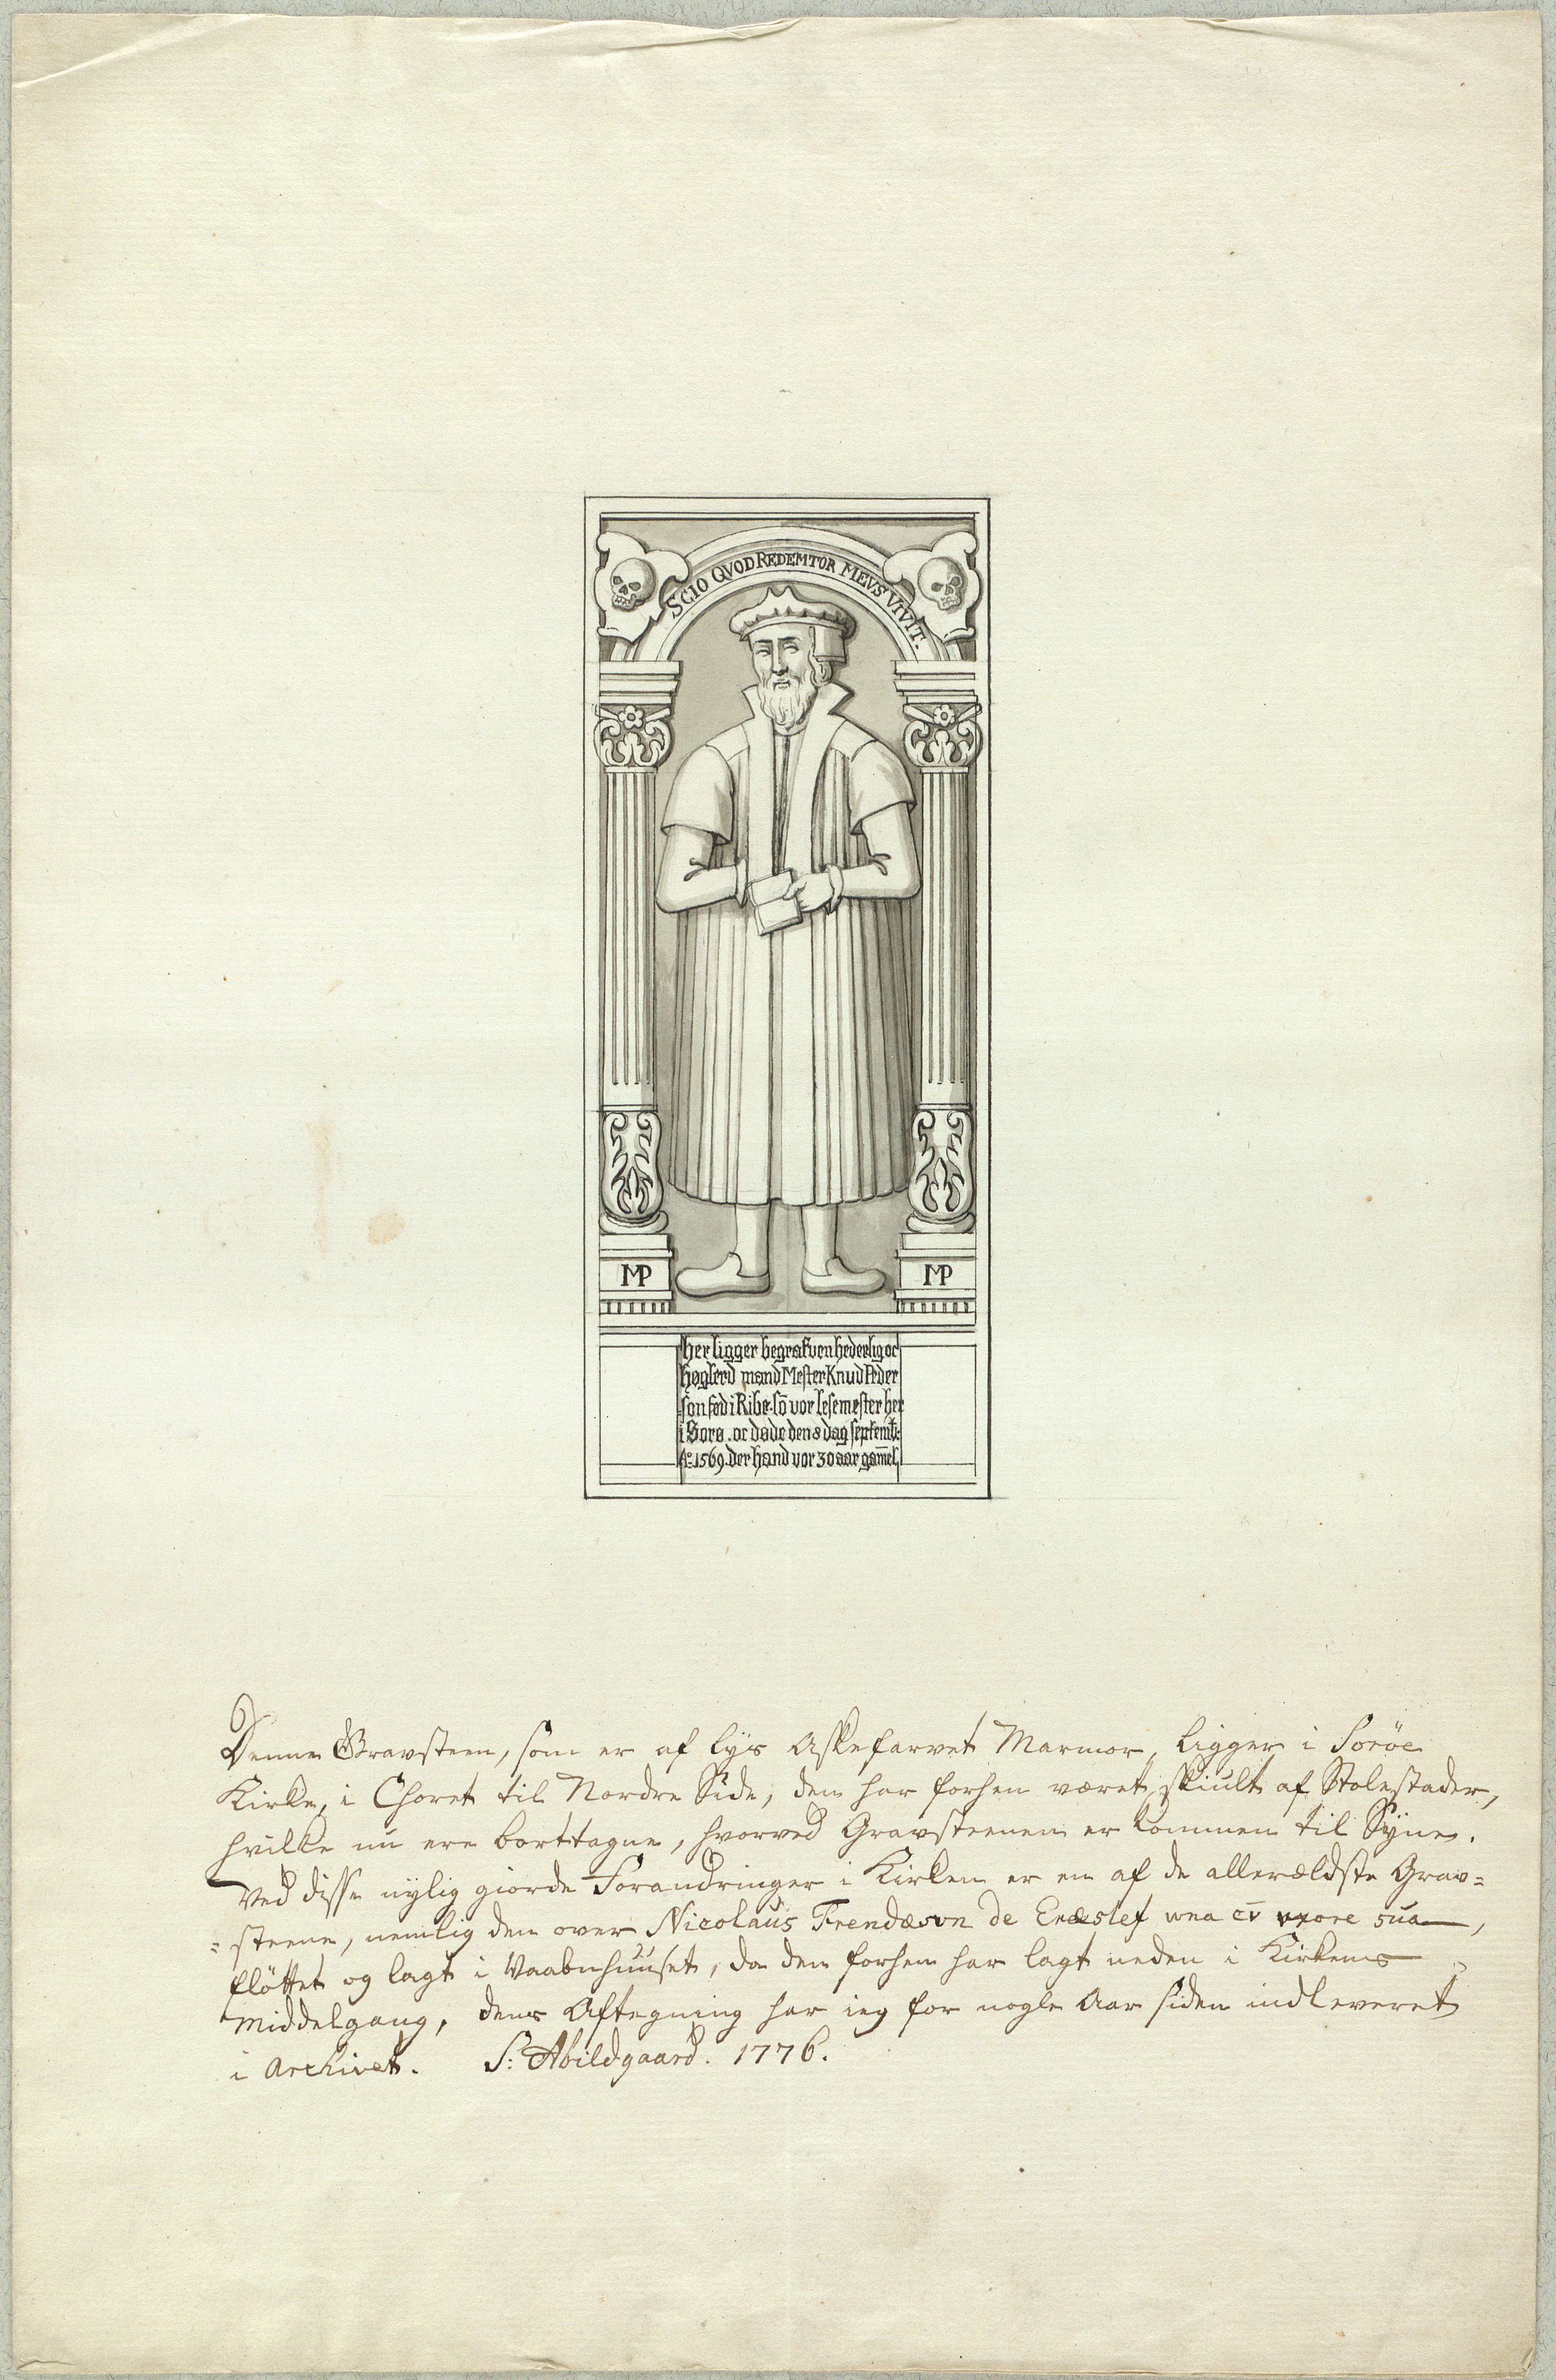 SCIO QVOD REDEMTOR MEVS VIVIT.
MP
MP
her ligger begrafven hederlig oc
høglerd mand Mester Knud Peder
son fød i Ribe. sō vor lesemester her
i Sorø. oc døde den 8 dag septemb:
Ao. 1569. der hand vor 30 aar gam̄el,
Denne Gravsteen, som er af lys Askefarvet Marmor, ligger i Soröe
Kirke, i Choret til Nordre Side, den har forhen været skiult af Stolestader,
hvilke nu ere borttagne, hvorved Gravsteenen er kommen til Syne.
Ved disse nÿlig giorde Forandringer i Kirken er en af de allerældste Grav=
=steene, nemlig den over Nicolaus Frendæson de Eræslef wna cv̄ vxore sua,
flöttet og lagt i Vaabenhuuset, da den forhen har lagt neden i Kirkens
Middelgang, dens Aftegning har ieg for nogle Aar siden indleveret
i Archivet. S: Abildgaard. 1776.